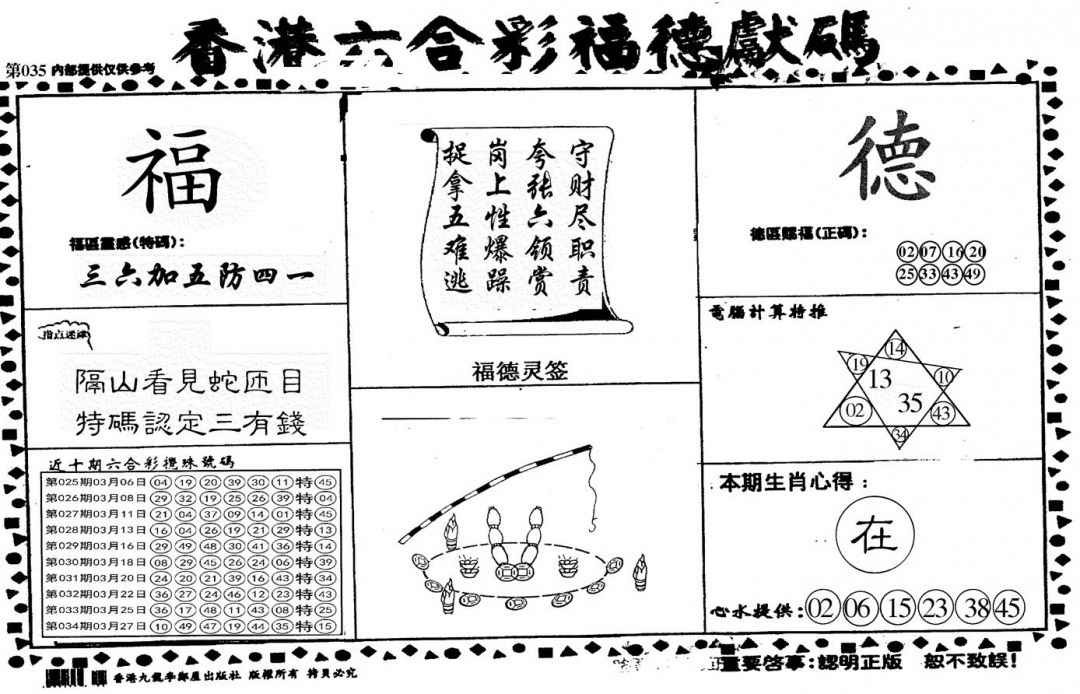 香港六合彩福德獻碼
第035 内部提供仅供参考
福
福區靈感(特碼):
三六加五防四一
指点迷津
隔山看見蛇匝目
特碼認定三有錢
近十期六合彩攪珠號碼
第025期03月06日 04 19 20 39 30 11 特 45
第026期03月08日 29 32 19 25 26 39 特 04
第027期03月11日 21 04 37 09 14 01 特 45
第028期03月13日 16 04 26 19 21 29 特 13
第029期03月16日 29 49 48 30 41 36 特 14
第030期03月18日 08 29 45 26 24 06 特 39
第031期03月20日 24 20 21 39 16 43 特 34
第032期03月22日 36 27 24 46 12 23 特 43
第033期03月25日 36 17 48 11 43 08 特 25
第034期03月27日 10 49 47 19 44 35 特 15
守财尽职责
夸张六领赏
岗上性爆躁
捉拿五难逃
福德灵签
德
德區賜福(正碼):
02 07 16 20
25 33 43 49
電腦計算特推
14
19
10
13
35
02
43
34
本期生肖心得:
在
心水提供: 02 06 15 23 38 45
香港九龍李鄭屋出版社 版權所有 拷貝必究
重要啓事:認明正版 恕不致誤!